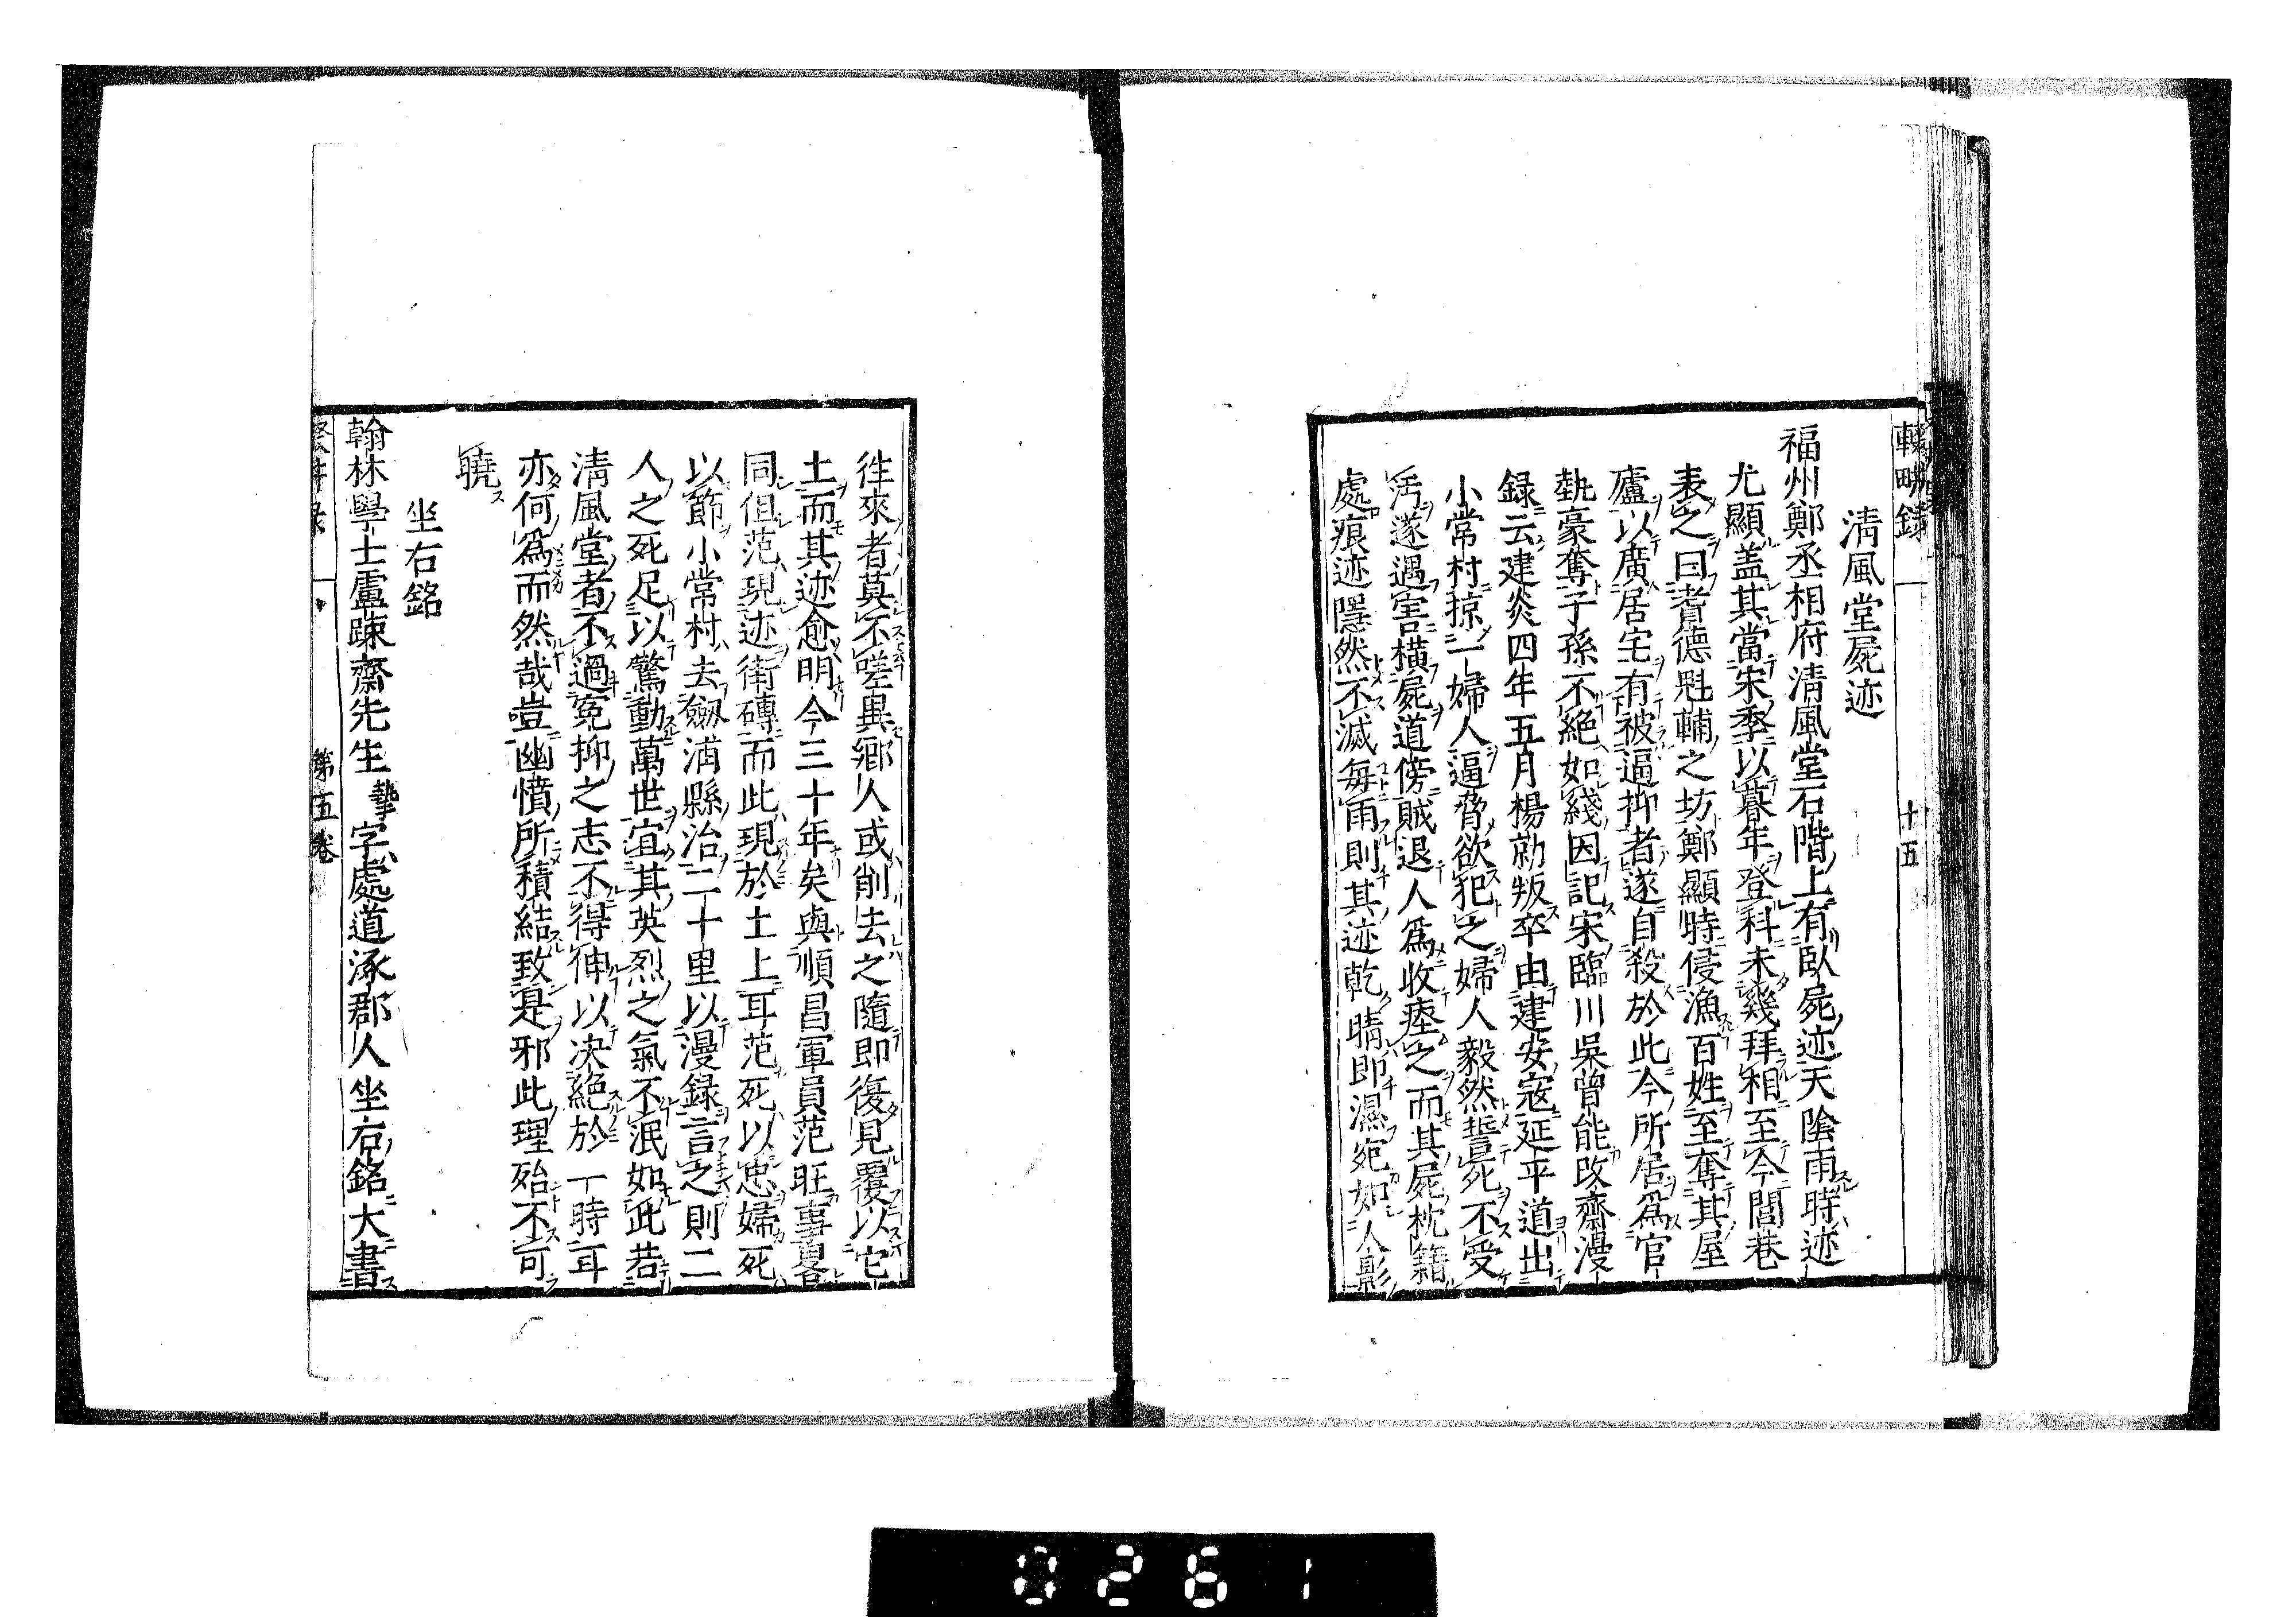 輟畊録 十五
清風堂屍迹
福州鄭丞相府清風堂石階上有臥屍迹天陰雨時迹
尤顯盖其當宋季以暮年登科未幾拜相至今閭巷
表之曰耆德魁輔之坊鄭顯時侵漁百姓至奪其屋
廬以廣居宅有被逼抑者遂自殺於此今所居爲官
勢豪奪子孫不絶如綫因記宋臨川吳曾能改齋漫
録云建炎四年五月楊勍叛卒由建安寇延平道出
小常村掠一婦人逼脅欲犯之婦人毅然誓死不受
汚遂遇害橫屍道傍賊退人爲收瘞之而其屍枕籍
處痕迹隱然不滅每雨則其迹乾晴即濕宛如人影
徃來者莫不嗟異鄉人或削去之隨即復見覆以它
土而其迹愈明今三十年矣與順昌軍員范旺事畧
同但范現迹街磚而此現於土上耳范死以忠婦死
以節小常村去劒浦縣治二十里以漫録言之則二
人之死足以驚動萬世宜其英烈之氣不泯如此若
清風堂者不過冤抑之志不得伸以決絶於一時耳
亦何爲而然哉豈幽憤所積結致是邪此理殆不可
曉
坐右銘
翰林學士盧踈齋先生摯字處道涿郡人坐右銘大書
第五卷